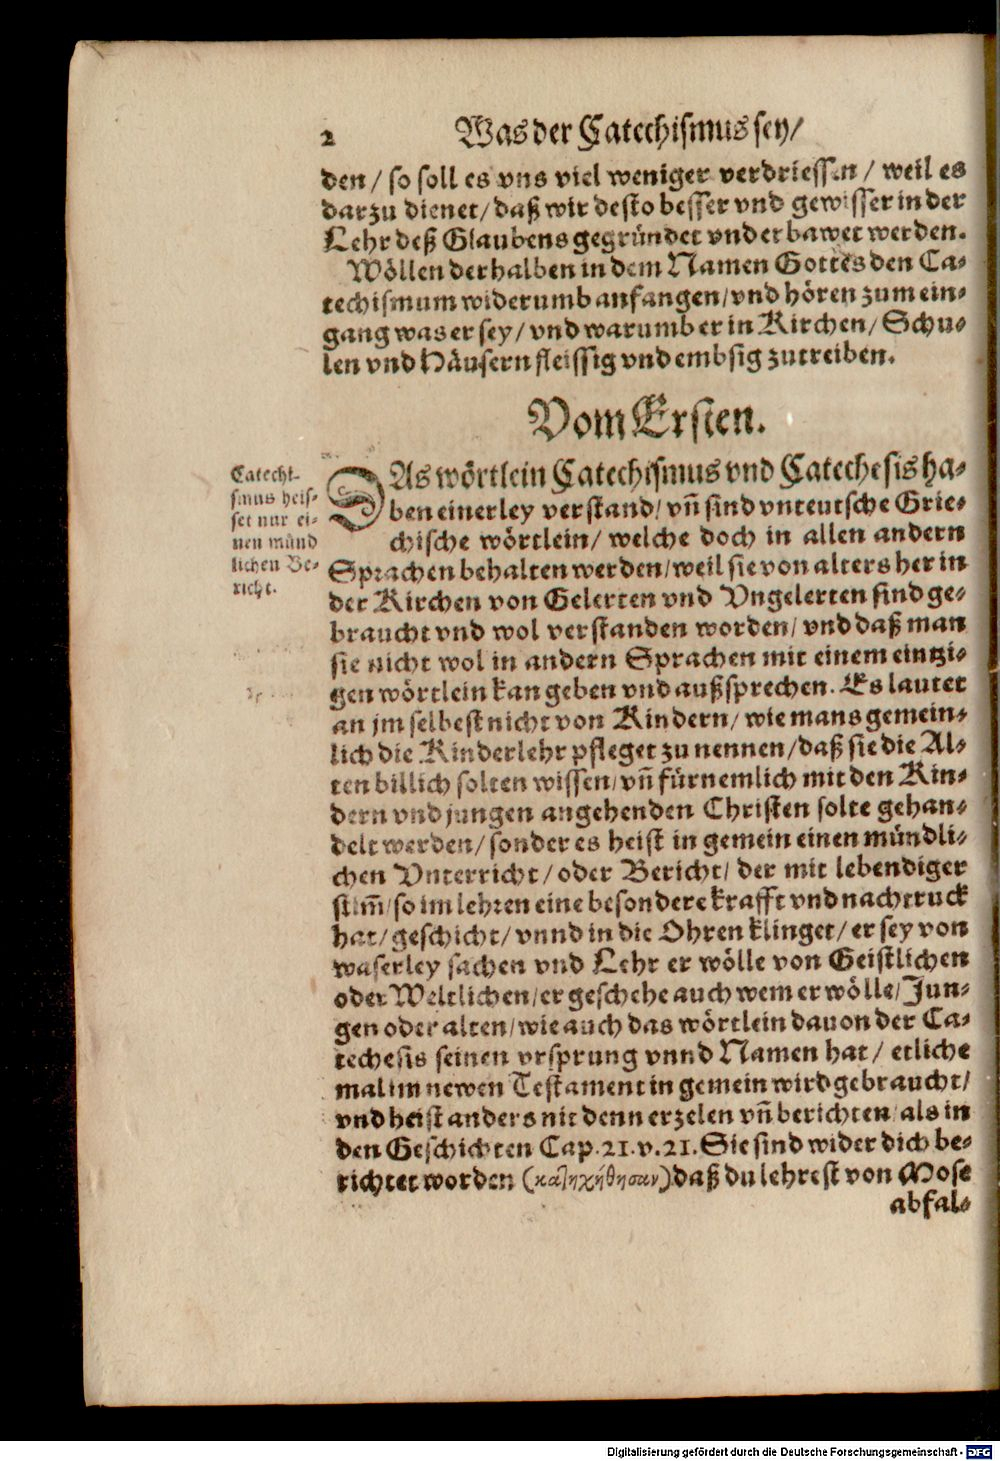 2 Was der Catechismus sey/
den / so soll es vns viel weniger verdriessen / weil es
darzu dienet / daß wir desto besser vnd gewisser in der
Lehr deß Glaubens gegründet vnd erbawet werden.
Wöllen derhalben in dem Namen Gottes den Ca-
techismum widerumb anfangen / vnd hören zum ein-
gang was er sey / vnd warumb er in Kirchen / Schu-
len vnd Häusern fleissig vnd embsig zutreiben.
Vom Ersten.
Catechi-
smus heis-
set nur ei-
nen münd
lichen Be-
richt.
DAs wörtlein Catechismus vnd Catechesis ha-
ben einerley verstand / vn̄ sind vnteutsche Grie-
chische wörtlein / welche doch in allen andern
Sprachen behalten werden / weil sie von alters her in
der Kirchen von Gelerten vnd Vngelerten sind ge-
braucht vnd wol verstanden worden / vnd daß man
sie nicht wol in andern Sprachen mit einem eintzi-
gen wörtlein kan geben vnd außsprechen. Es lautet
an jm selbest nicht von Kindern / wie mans gemein-
lich die Kinderlehr pfleget zu nennen / daß sie die Al-
ten billich solten wissen / vn̄ fürnemlich mit den Kin-
dern vnd jungen angehenden Christen solte gehan-
delt werden / sonder es heist in gemein einen mündli-
chen Vnterricht / oder Bericht / der mit lebendiger
stim̄ / so im lehren eine besondere krafft vnd nachtruck
hat / geschicht / vnnd in die Ohren klinget / er sey von
waserley sachen vnd Lehr er wölle von Geistlichen
oder Weltlichen / er geschehe auch wem er wölle / Jun-
gen oder alten / wie auch das wörtlein dauon der Ca-
techesis seinen vrsprung vnnd Namen hat / etliche
mal im newen Testament in gemein wird gebraucht /
vnd heist anders nit denn erzelen vn̄ berichten / als in
den Geschichten Cap. 21. v. 21. Sie sind wider dich be-
richtet worden (κατηχήθησαν) daß du lehrest von Mose
abfal-
Digitalisierung gefördert durch die Deutsche Forschungsgemeinschaft - DFG